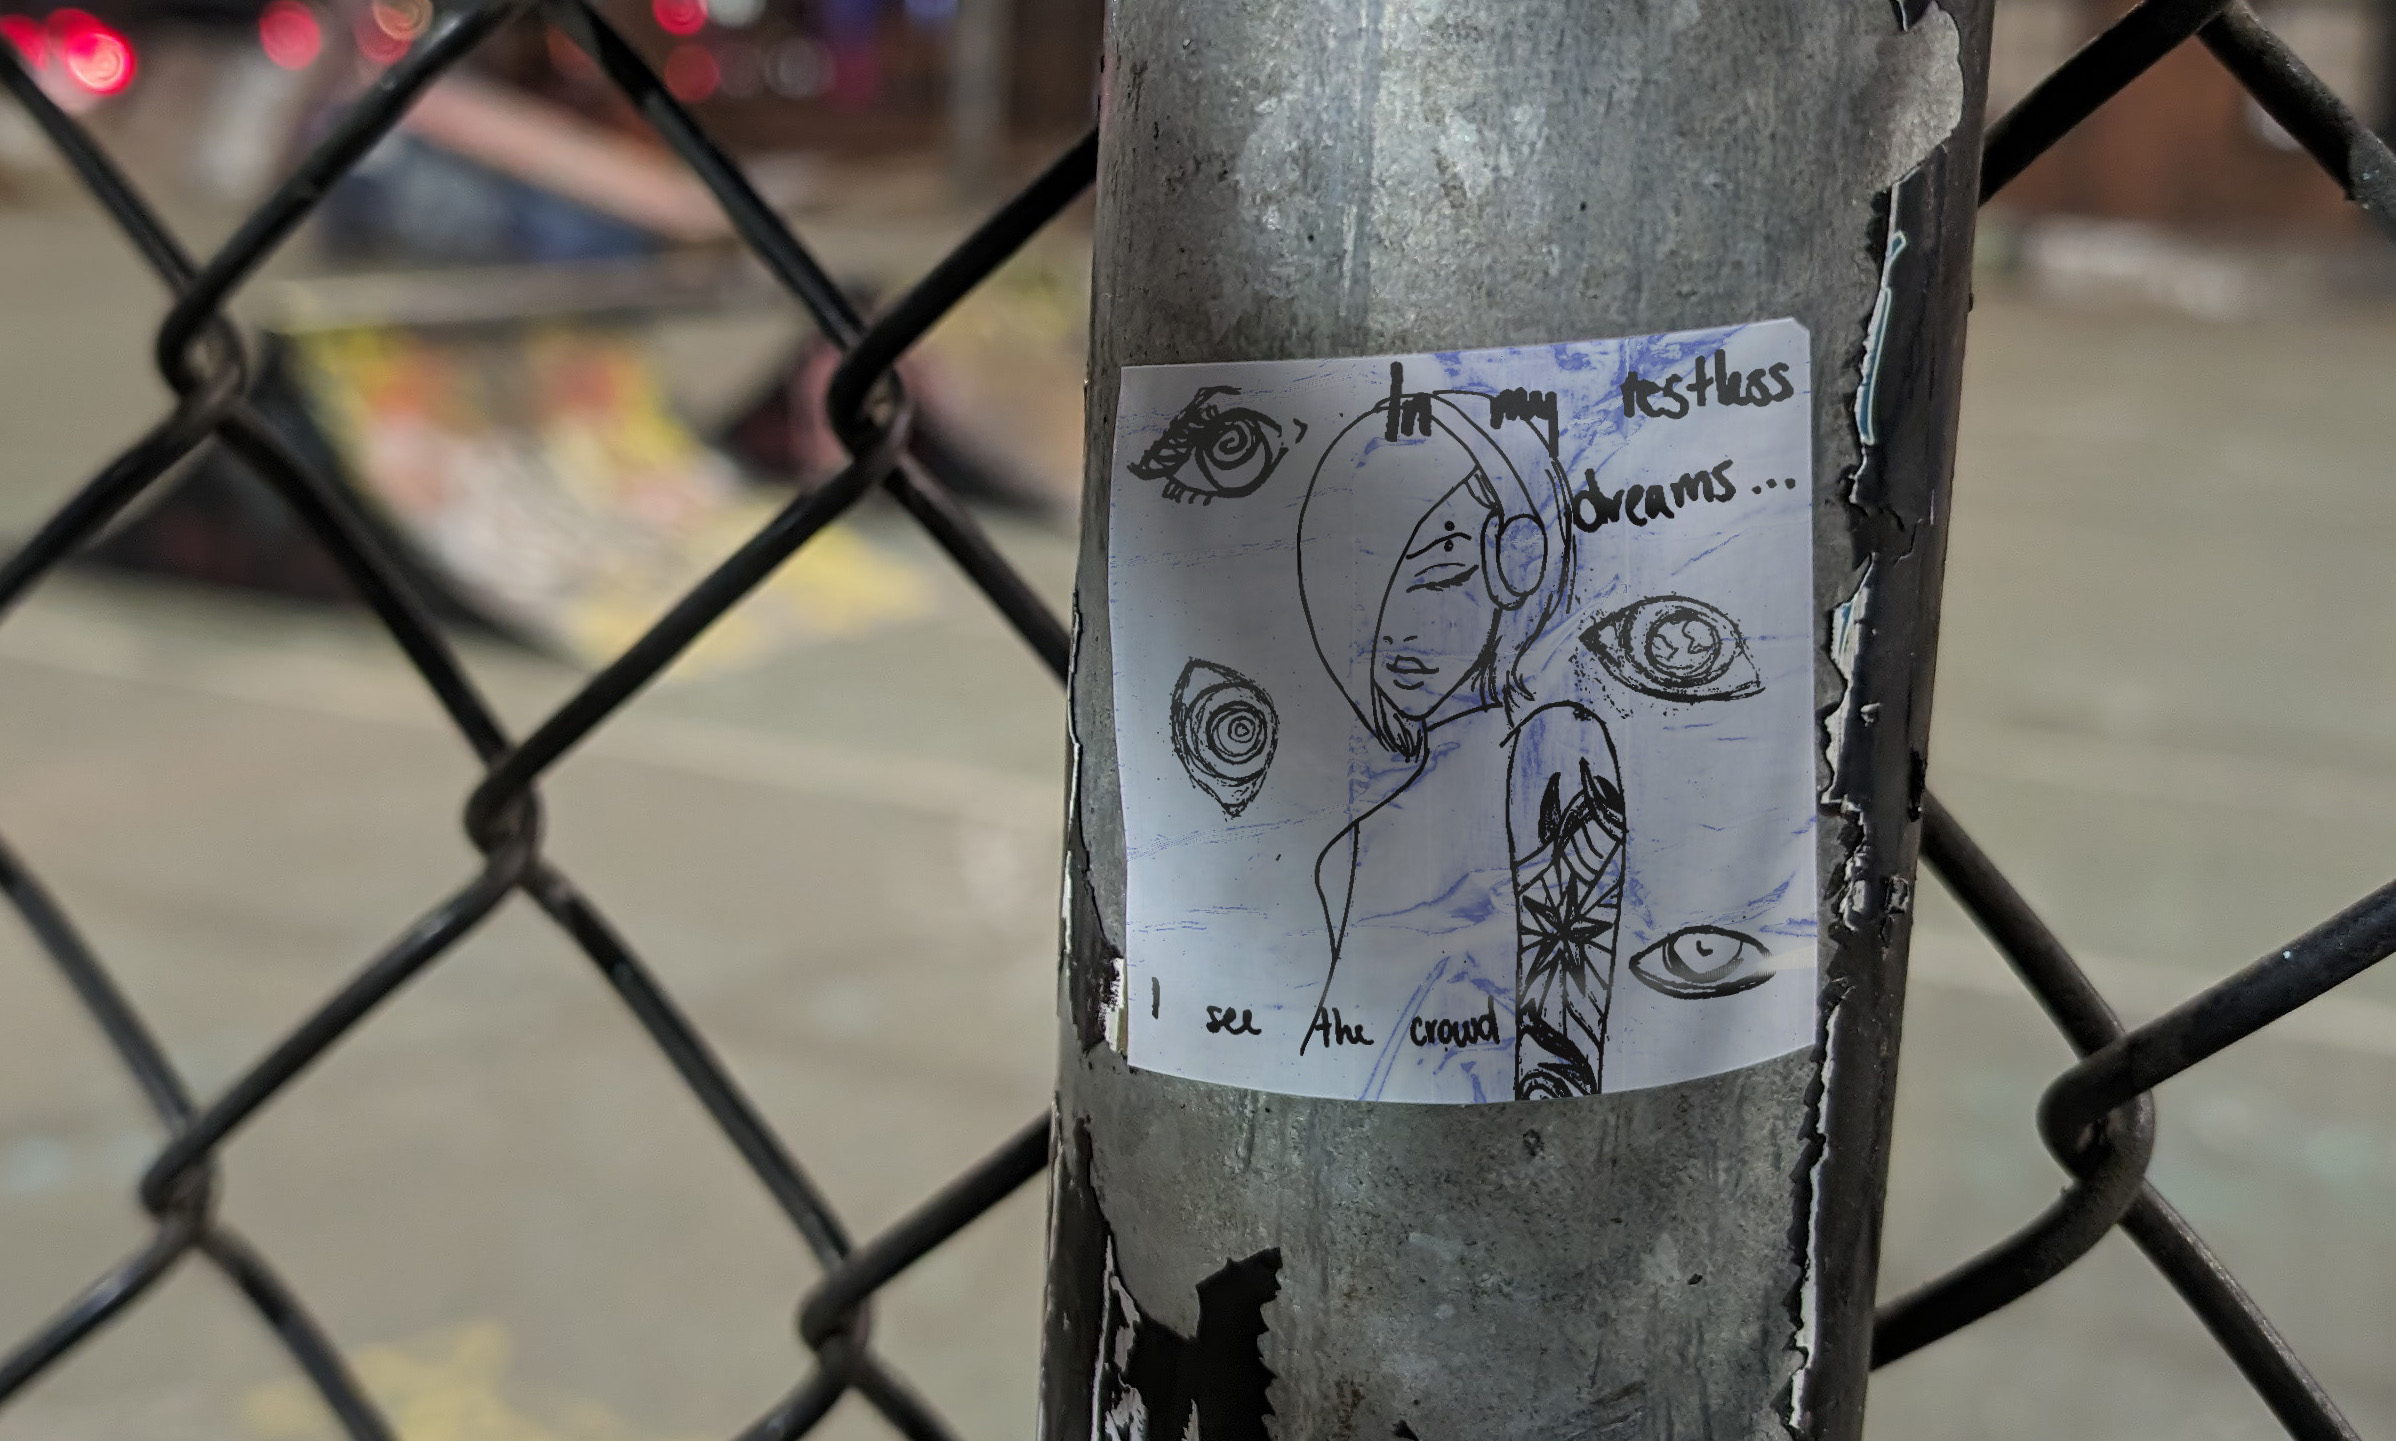 In my restless
dreams...
I see the crowd